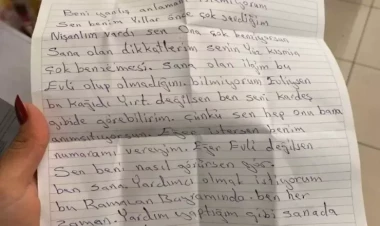 Beni yanlış anlama istemiyorum
Sen benim Yıllar önce çok sevdiğim
Nişanlım vardı sen Ona çok benziyorsun
Sana olan dikkatlerim senin
çok benzemesi. Sana olan ilgim bu
Evli olup olmadığını. bilmiyorum Evliysen
bu kağıdı Yırt. değilsen ben seni kardeş
gibide görebilirim. çünkü sen hep onu bana
benim
numaramı vereyim. Eğer Evli değilsen
Sen beni nasıl görürsen gör.
ben sana. Yardımcı olmak istiyorum
bu Ramazan Bayramında. ben her
zaman. Yardım yaptığım gibi sanada